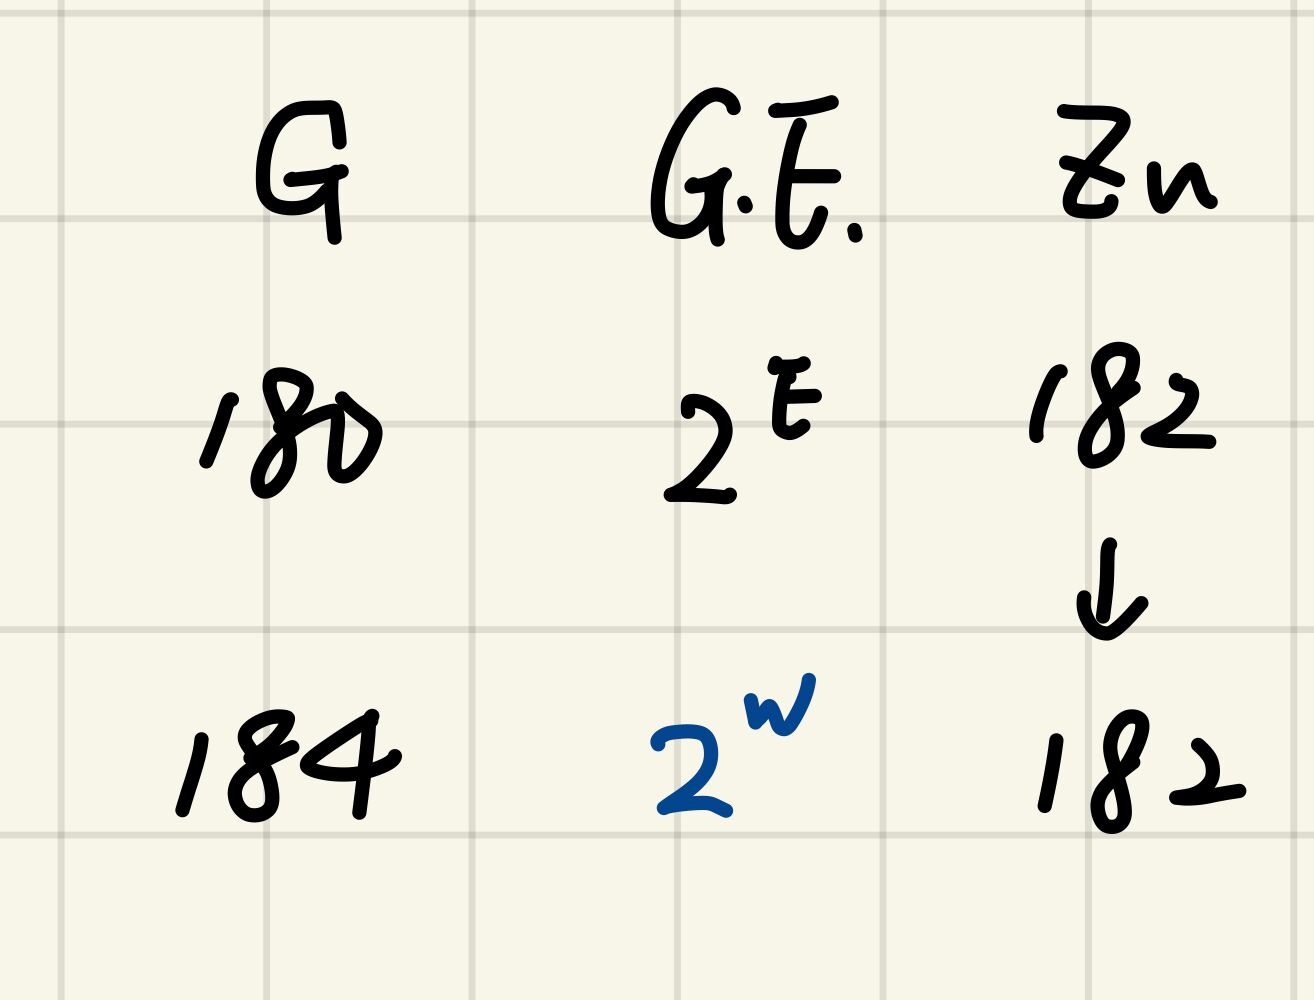 G G.E. Zn
180 2^E 182
↓
184 2^W 182